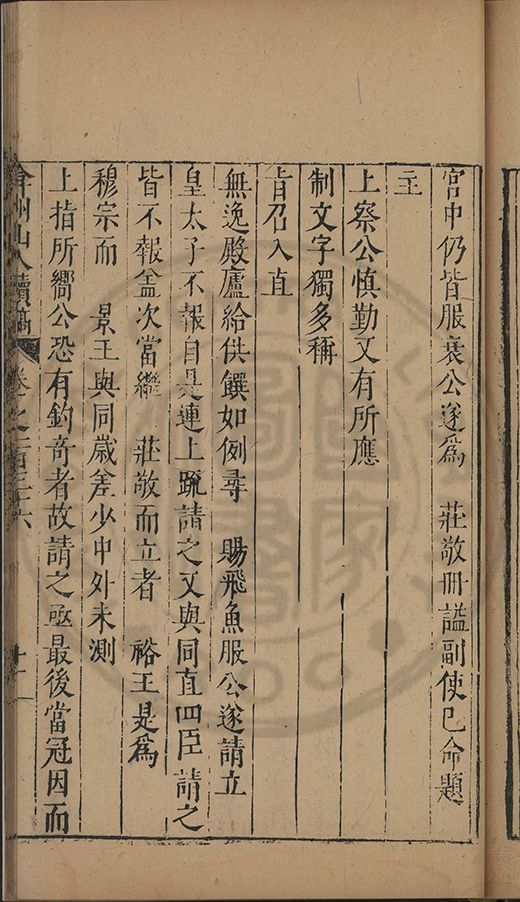 宮中仍皆服衰公遂爲　莊敬冊謚副使已命題
主
上察公慎勤又有所應
制文字獨多稱
旨召入直
無逸殿廬給供饌如例尋　賜飛魚服公遂請立
皇太子不報自是連上疏請之又與同直四臣請之
皆不報盖次當繼　莊敬而立者　裕王是爲
穆宗而　景王與同歲差少中外未測
上指所嚮公恐有釣奇者故請之亟最後當冠因而
弇州山人續稿　卷之一百三十六　十一